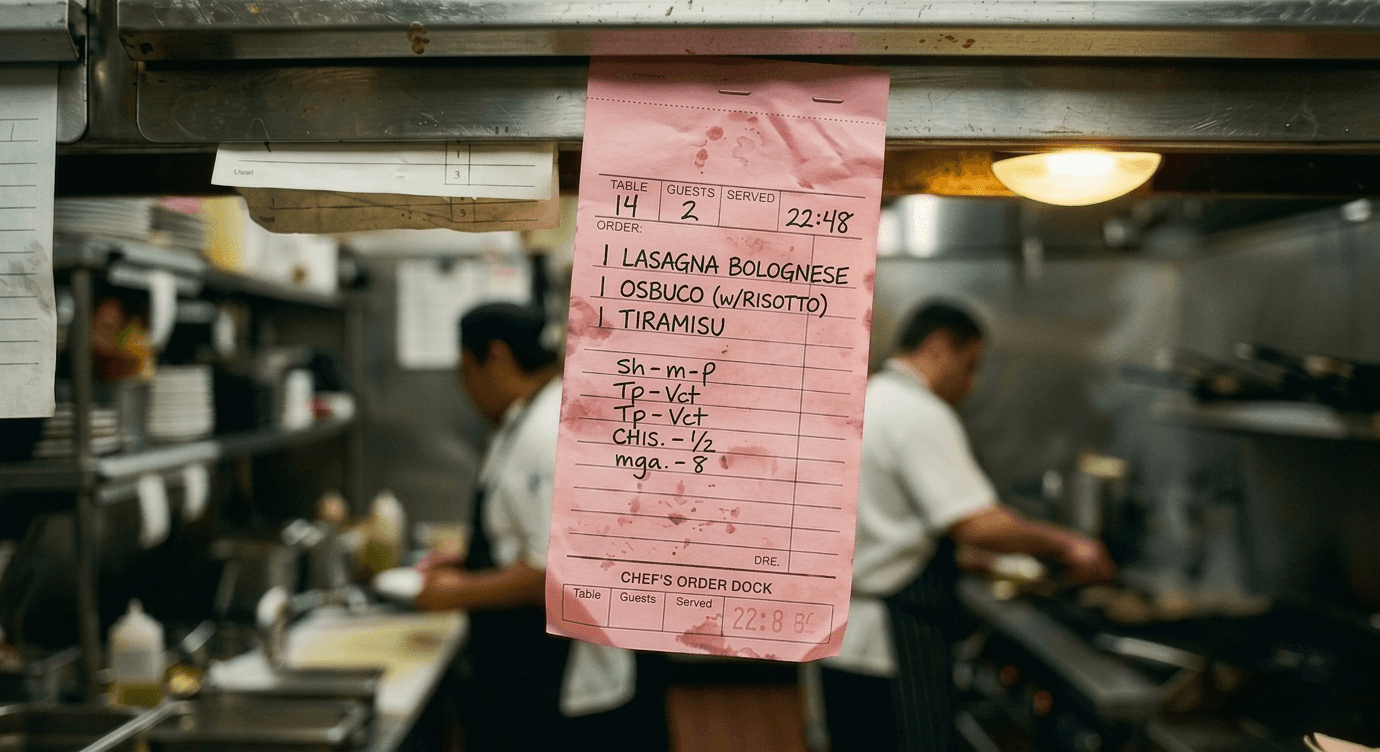 3
TABLE GUESTS SERVED
14 2 22:48
ORDER:
1 LASAGNA BOLOGNESE
1 OSBUCO (w/RISOTTO)
1 TIRAMISU
Sh-m-p
Tp-Vct
Tp-Vct
CHIS. - 1/2
mga. - 8
DRE.
CHEF'S ORDER DOCK
Table Guests Served